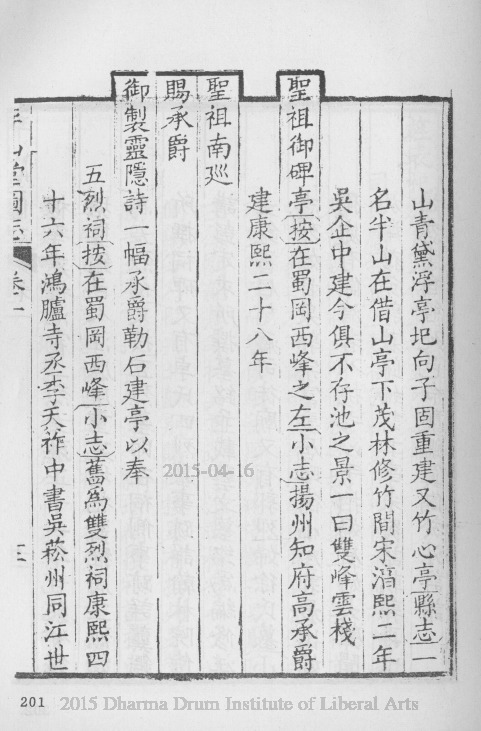 山青黛浮亭圯向子固重建又竹心亭縣志一
名半山在借山亭下茂林修竹間宋淳熙二年
吳企中建今俱不存池之景一曰雙峰雲棧
聖祖御碑亭按在蜀岡西峰之左小志揚州知府高承爵
建康熙二十八年
聖祖南巡
賜承爵
御製靈隱詩一幅承爵勒石建亭以奉
五烈祠按在蜀岡西峰小志舊為雙烈祠康熙四
十六年鴻臚寺丞李天祚中書吳菘州同江世
平山堂圖志
卷二
三
2015-04-16
201
2015 Dharma Drum Institute of Liberal Arts